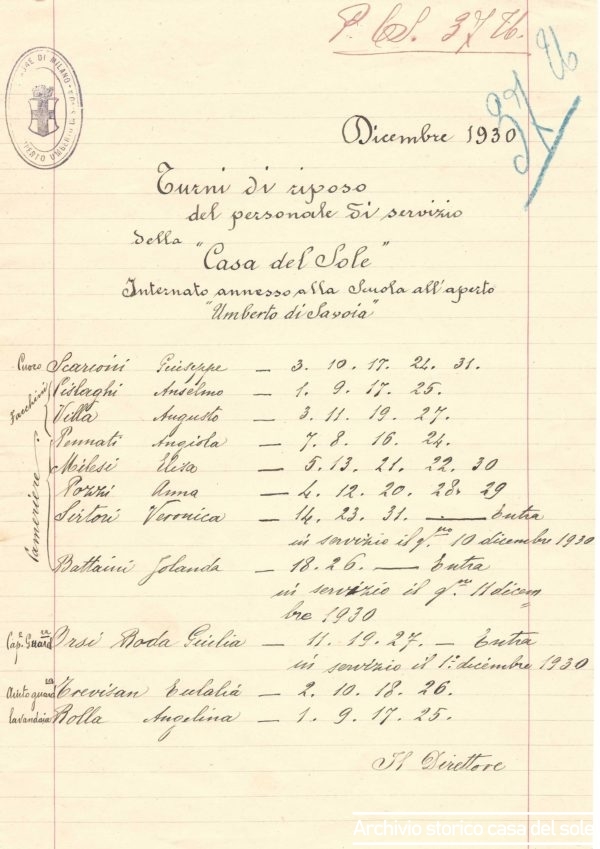 P. CS. 37 U.
37 U
RE DI MILANO
PERTO UMBERTO
Dicembre 1930
Turni di riposo
del personale di servizio
della
"Casa del Sole"
Internato annesso alla Scuola all'aperto
"Umberto di Savoia"
Cuoco Scarioni Giuseppe — 3. 10. 17. 24. 31.
Facchini Pislaghi Anselmo — 1. 9. 17. 25.
Villa Augusto — 3. 11. 19. 27.
Cameriere: Pennati Angiola — 7. 8. 16. 24.
Milesi Elisa — 5. 13. 21. 22. 30
Pozzi Anna — 4. 12. 20. 28. 29
Sirtori Veronica — 14. 23. 31. — Entra
in servizio il g.no 10 dicembre 1930
Battaini Jolanda — 18. 26. — Entra
in servizio il g.no 11 dicem=
bre 1930
Cap.e Guard.ra Orsi Boda Giulia — 11. 19. 27. — Entra
in servizio il 1° dicembre 1930
Aiuto guard.ra Trevisan Eulalia — 2. 10. 18. 26.
lavandaia Rolla Angelina — 1. 9. 17. 25.
Il Direttore
Archivio storico casa del sole